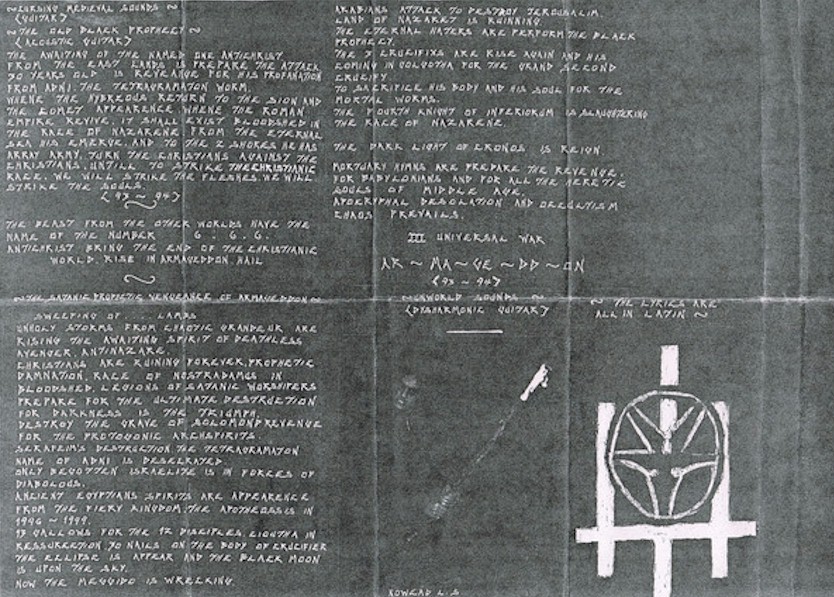 ~ CURSING MEDIEVAL SOUNDS ~
(GUITAR)
~ THE OLD BLACK PROPHECY ~
(ACOUSTIC GUITAR)
THE AWAITING OF THE NAMED ONE ANTICHRIST
FROM THE EAST LANDS IS PREPARE THE ATTACK
30 YEARS OLD IS REVENGE FOR HIS PROFANATION
FROM ADNI. THE TETRAGRAMATON WORM.
WHENE THE HYBREOUS RETURN TO THE SION AND
THE COMET APPEARENCE WHENE THE ROMAN
EMPIRE REVIVE. IT SHALL EXIST BLOODSHED IN
THE RACE OF NAZARENE. FROM THE ETERNAL
SEA HIS EMERGE. AND TO THE 2 SHORES HE HAS
ARRAY ARMY. TURN THE CHRISTIANS AGAINST THE
CHRISTIANS. UNTILL TO STRIKE THE CHRISTIANIC
RACE. WE WILL STRIKE THE FLESHES. WE WILL
STRIKE THE SOULS.
(93 ~ 94)
THE BEAST FROM THE OTHER WORLDS HAVE THE
NAME OF THE NUMBER 6 . 6 . 6 .
ANTICHRIST BRING THE END OF THE CHRISTIANIC
WORLD. RISE IN ARMAGEDDON. HAIL
~ THE SATANIC PROPHETIC VENGEANCE OF ARMAGEDDON ~
SWEEPING OF ... LAMBS
UNHOLY STORMS FROM CHAOTIC GRANDEUR ARE
RISING THE AWAITING SPIRIT OF DEATHLESS
AVENGER. ANTINAZARE.
CHRISTIANS ARE RUINING FOREVER. PROPHETIC
DAMNATION. RACE OF NOSTRADAMUS IN
BLOODSHED. LEGIONS OF SATANIC WORSHIPERS
PREPARE FOR THE ULTIMATE DESTRUCTION
FOR DARKNESS IS THE TRIUMPH.
DESTROY THE GRAVE OF SOLOMONDREVENGE
FOR THE PROTOGONIC ARCHSPIRITS.
SERAFEIM'S DESTRUCTION THE TETRAGRAMATON
NAME OF ADNI IS DESECRATED.
ONLY BEGOTTEN ISRAELITE IS IN FORCES OF
DIABOLOUS.
ANCIENT EGYPTIANS SPIRITS ARE APPEARENCE
FROM THE FIERY KINGDOM. THE APOTHEOSIS IS IN
1996 ~ 1999.
GALLOWS FOR THE 12 DISCIPLES. IN
RESSURECTION 30 NAILS ON THE BODY OF CRUCIFIER
THE ELLIPSE IS APPEAR AND THE BLACK MOON
IS UPON THE SKY.
NOW THE MEGGIDO IS WRECKING.
ARABIANS ATTACK TO DESTROY JEROUSALIM.
LAND OF NAZARET IS RUINNING.
THE ETERNAL HATERS ARE PERFORM THE BLACK
PROPHECY.
THE 3 CRUCIFIXS ARE RISE AGAIN AND HIS
COMING IN GOLGOTHA FOR THE GRAND SECOND
CRUCIFY.
TO SACRIFICE HIS BODY AND HIS SOUL FOR THE
MORTAL WORMS.
THE FOURTH KNIGHT OF INFERIORUM IS SLAUGHTERING
THE RACE OF NAZARENE.
THE DARK LIGHT OF CRONOS IS REIGN.
MORTUARY HYMNS ARE PREPARE THE REVENGE.
FOR BABYLONIANS AND FOR ALL THE HERETIC
SOULS OF MIDDLE AGE.
APOCRYPHAL DESOLATION AND OCCULTISM
CHAOS PREVAILS.
III UNIVERSAL WAR
AR ~ MA ~ GE ~ DD ~ ON
(93 ~ 94)
~ UNWORLD SOUNDS ~
(DYSHARMONIC GUITAR)
~ THE LYRICS ARE
ALL IN LATIN ~
L. S